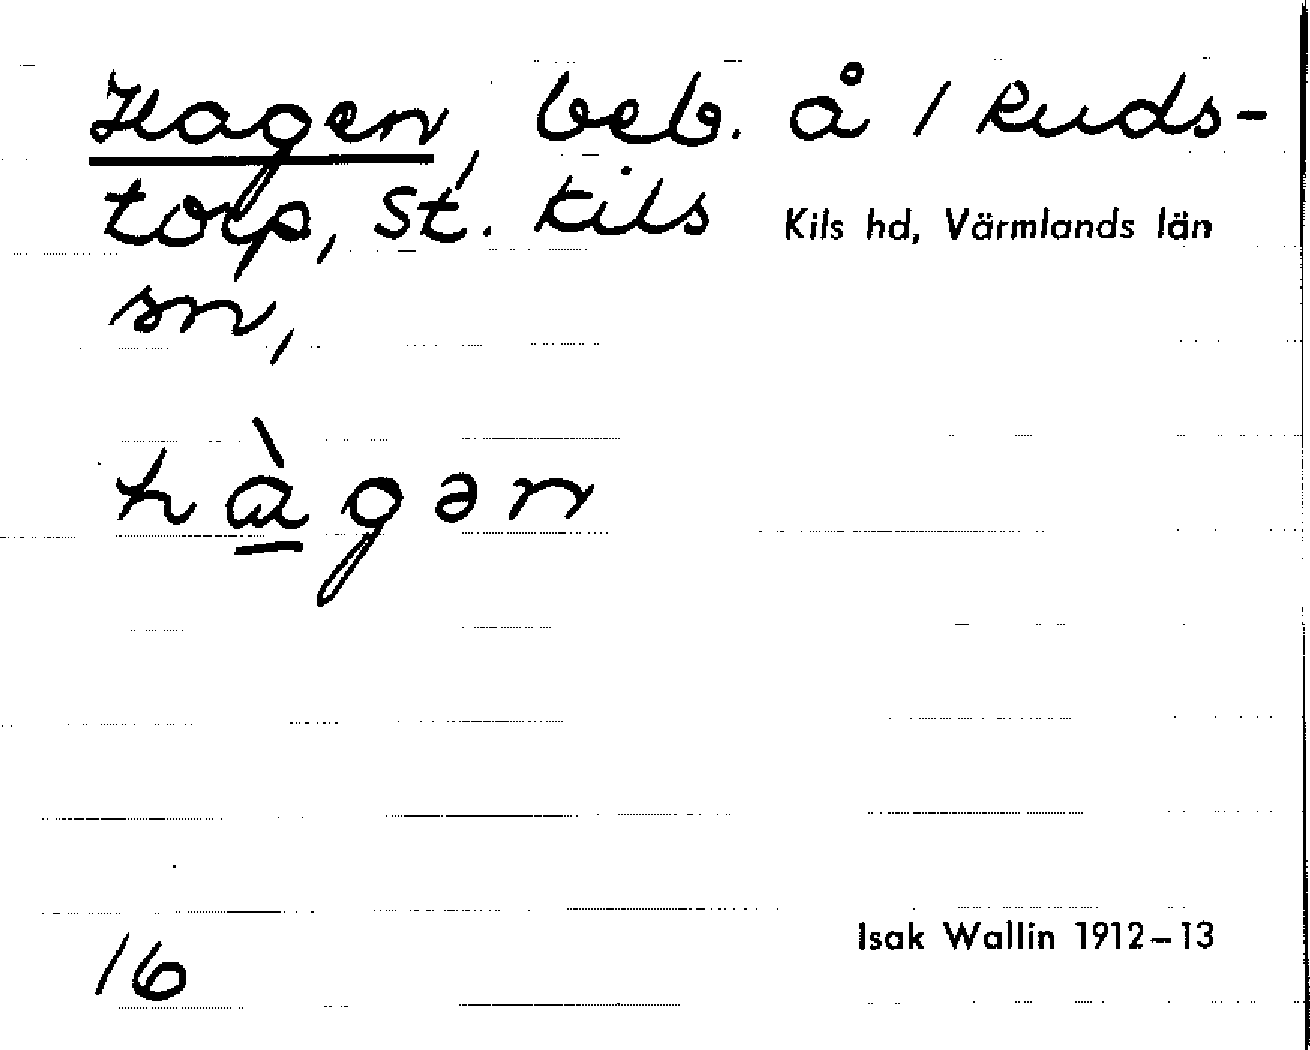 Hagen, beb. å 1 Ruds-
torp, St. Kils Kils hd, Värmlands län
sn,
hàgən
16 Isak Wallin 1912–13